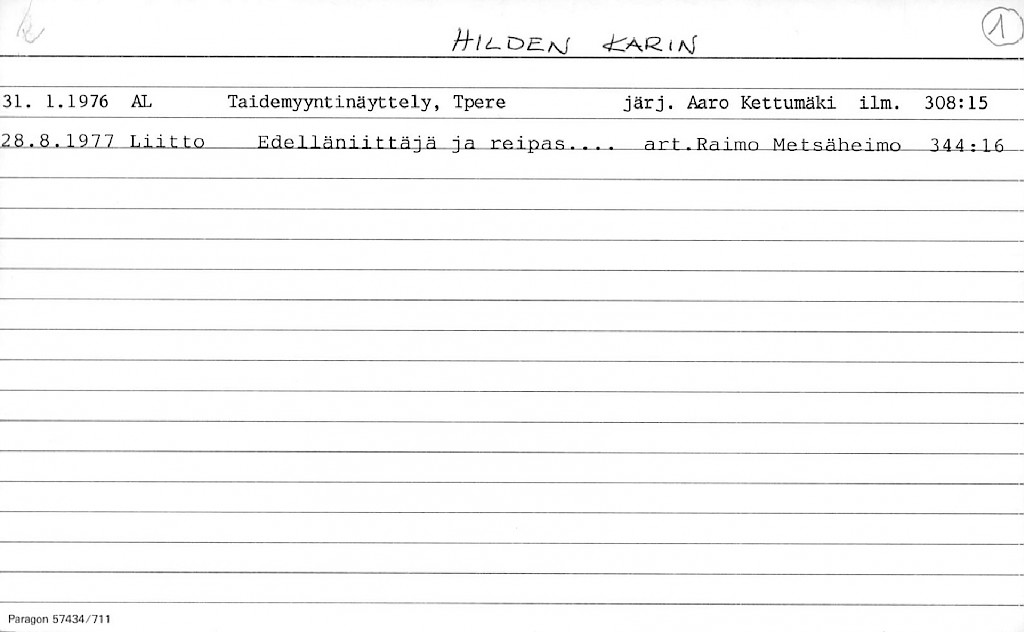 HILDEN KARIN 1
31. 1.1976 AL Taidemyyntinäyttely, Tpere järj. Aaro Kettumäki ilm. 308:15
28.8.1977 Liitto Edelläniittäjä ja reipas.... art.Raimo Metsäheimo 344:16
Paragon 57434/711